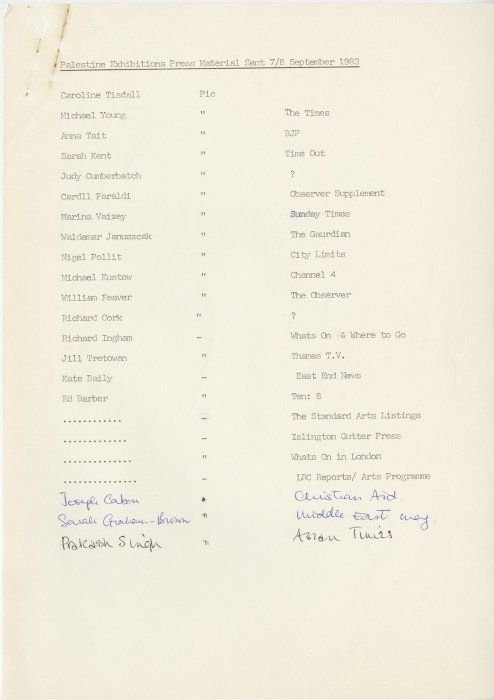 Palestine Exhibitions Press Material Sent 7/8 September 1983
Caroline Tisdall Pic
Michael Young " The Times
Anna Tait " BJP
Sarah Kent " Time Out
Judy Cumberbatch " ?
Cardll Faraldi " Observer Supplement
Marina Vaizey " Sunday Times
Waldemar Januszcak " The Gaurdian
Nigel Pollit " City Limits
Michael Kustow " Channel 4
William Feaver " The Observer
Richard Cork " ?
Richard Ingham - Whats On & Where to Go
Jill Tretowan " Thames T.V.
Kate Daily - East End News
Ed Barber " Ten: 8
............ - The Standard Arts Listings
............. - Islington Gutter Press
.............. " Whats On in London
............... - LBC Reports/ Arts Programme
Joseph " Christian Aid.
Sarah Graham-Brown " Middle East mag.
Prakash Singh " Asian Times